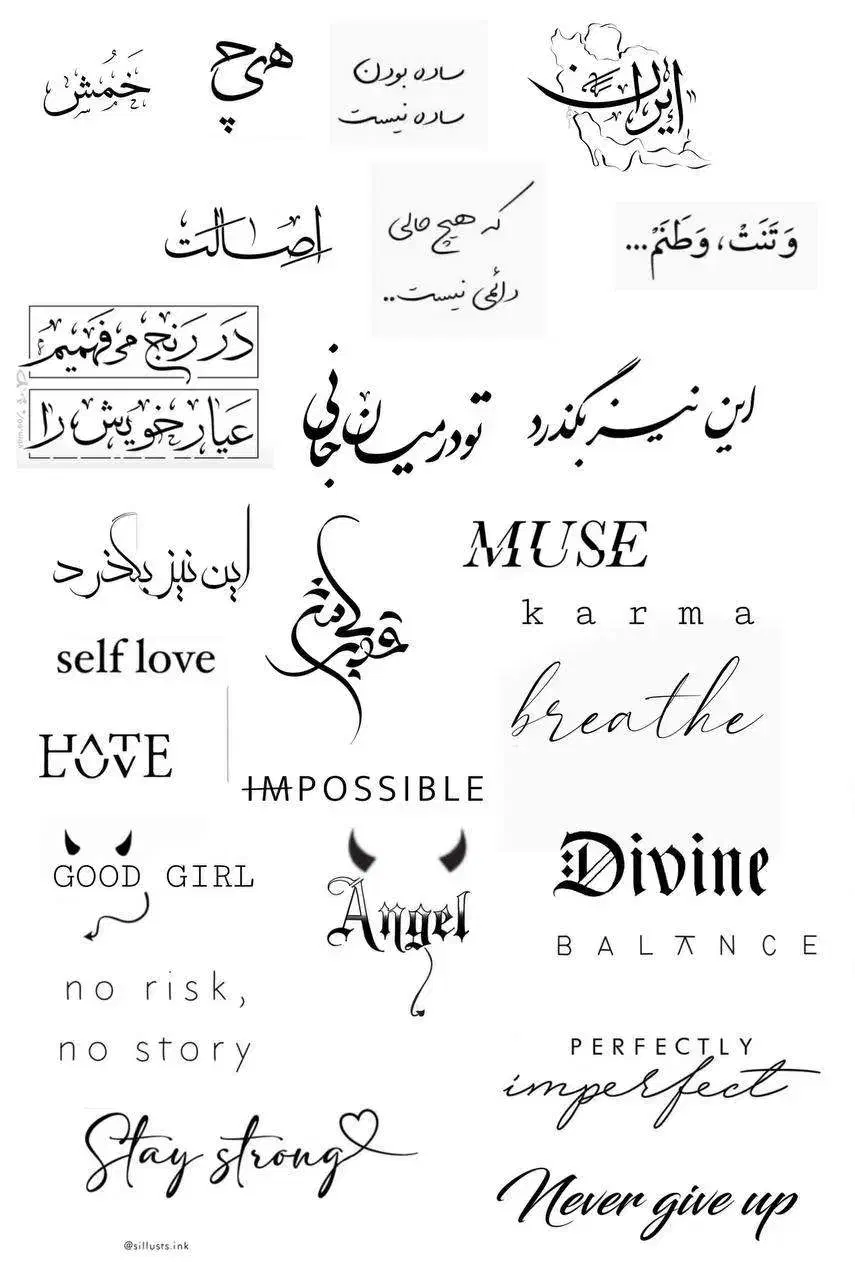 خَمُش
هیچ
ساده بودن
ساده نیست
ایران
اِصالت
که هیچ حالی
دائمی نیست..
وَ تَنَتْ، وَطَنَمْ...
دَر رَنج می‌فهمیم
عَیار خویش را
تو در میان جانی
این نیز بگذرد
این نیز بگذرد
MUSE
karma
self love
breathe
HATE
LOVE
IMPOSSIBLE
GOOD GIRL
Angel
Divine
BALANCE
no risk,
no story
PERFECTLY
imperfect
Stay strong
Never give up
@sillusts.ink